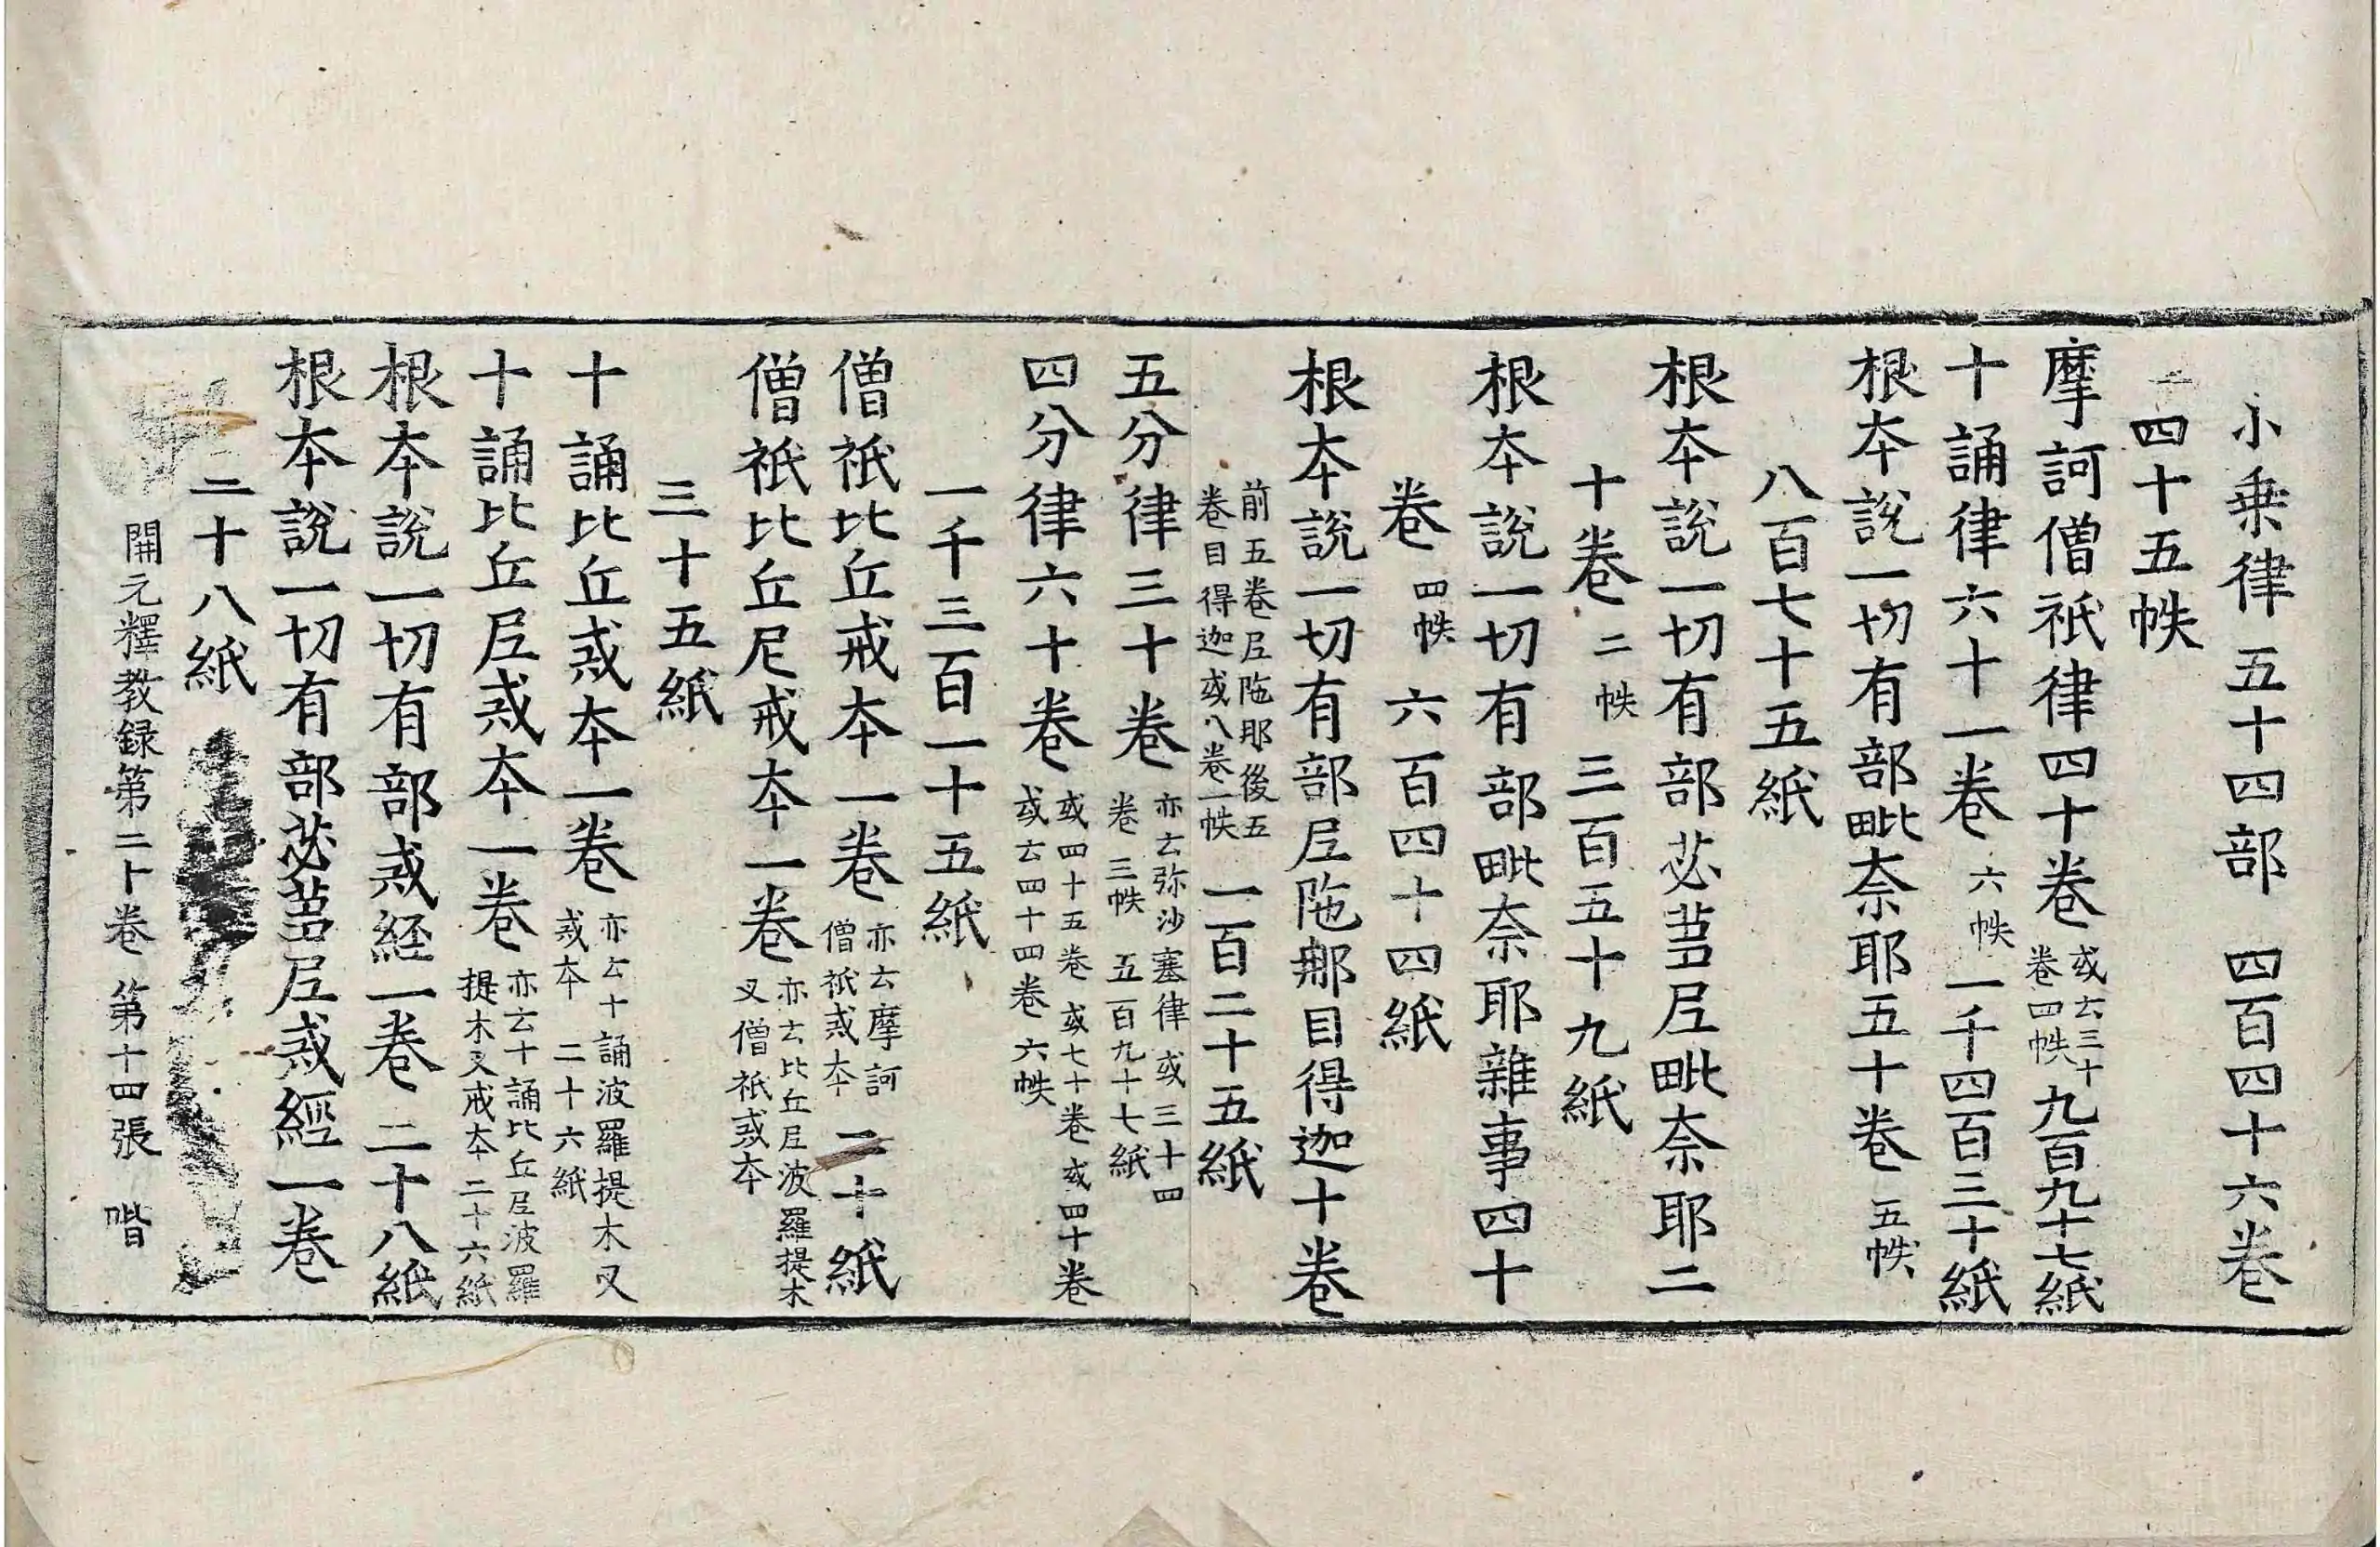 小乗律五十四部 四百四十六卷
四十五帙
摩訶僧祇律四十卷 或云三十卷四帙 九百九十七紙
十誦律六十一卷 六帙 一千四百三十紙
根本說一切有部毗奈耶五十卷 五帙
八百七十五紙
根本說一切有部苾蒭尼毗奈耶二
十卷 二帙 三百五十九紙
根本說一切有部毗奈耶雜事四十
卷 四帙 六百四十四紙
根本說一切有部尼陁那目得迦十卷
前五卷尼陁那後五卷目得迦或八卷一帙 一百二十五紙
五分律三十卷 亦云弥沙塞律或三十四卷 三帙 五百九十七紙
四分律六十卷 或四十五卷或七十卷或四十卷或云四十四卷六帙
一千三百一十五紙
僧祇比丘戒本一卷 亦云摩訶僧祇戒本 二十紙
僧祇比丘尼戒本一卷 亦云比丘尼波羅提木叉僧祇戒本
三十五紙
十誦比丘戒本一卷 亦云十誦波羅提木叉戒本 二十六紙
十誦比丘尼戒本一卷 亦云十誦比丘尼波羅提木叉戒本 二十六紙
根本說一切有部戒経一卷 二十八紙
根本說一切有部苾蒭尼戒經一卷
二十八紙
開元釋教録第二十卷 第十四張 喈